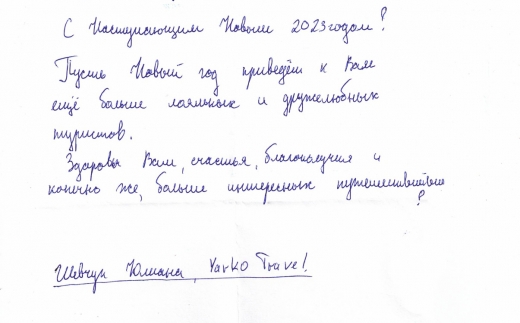 С Наступающим Новым 2023 годом!
Пусть Новый год приведёт к Вам
ещё больше лояльных и дружелюбных
туристов.
Здоровья Вам, счастья, благополучия и
конечно же, больше интересных путешествий
!
Шевчук Юлиана, Yarko Travel